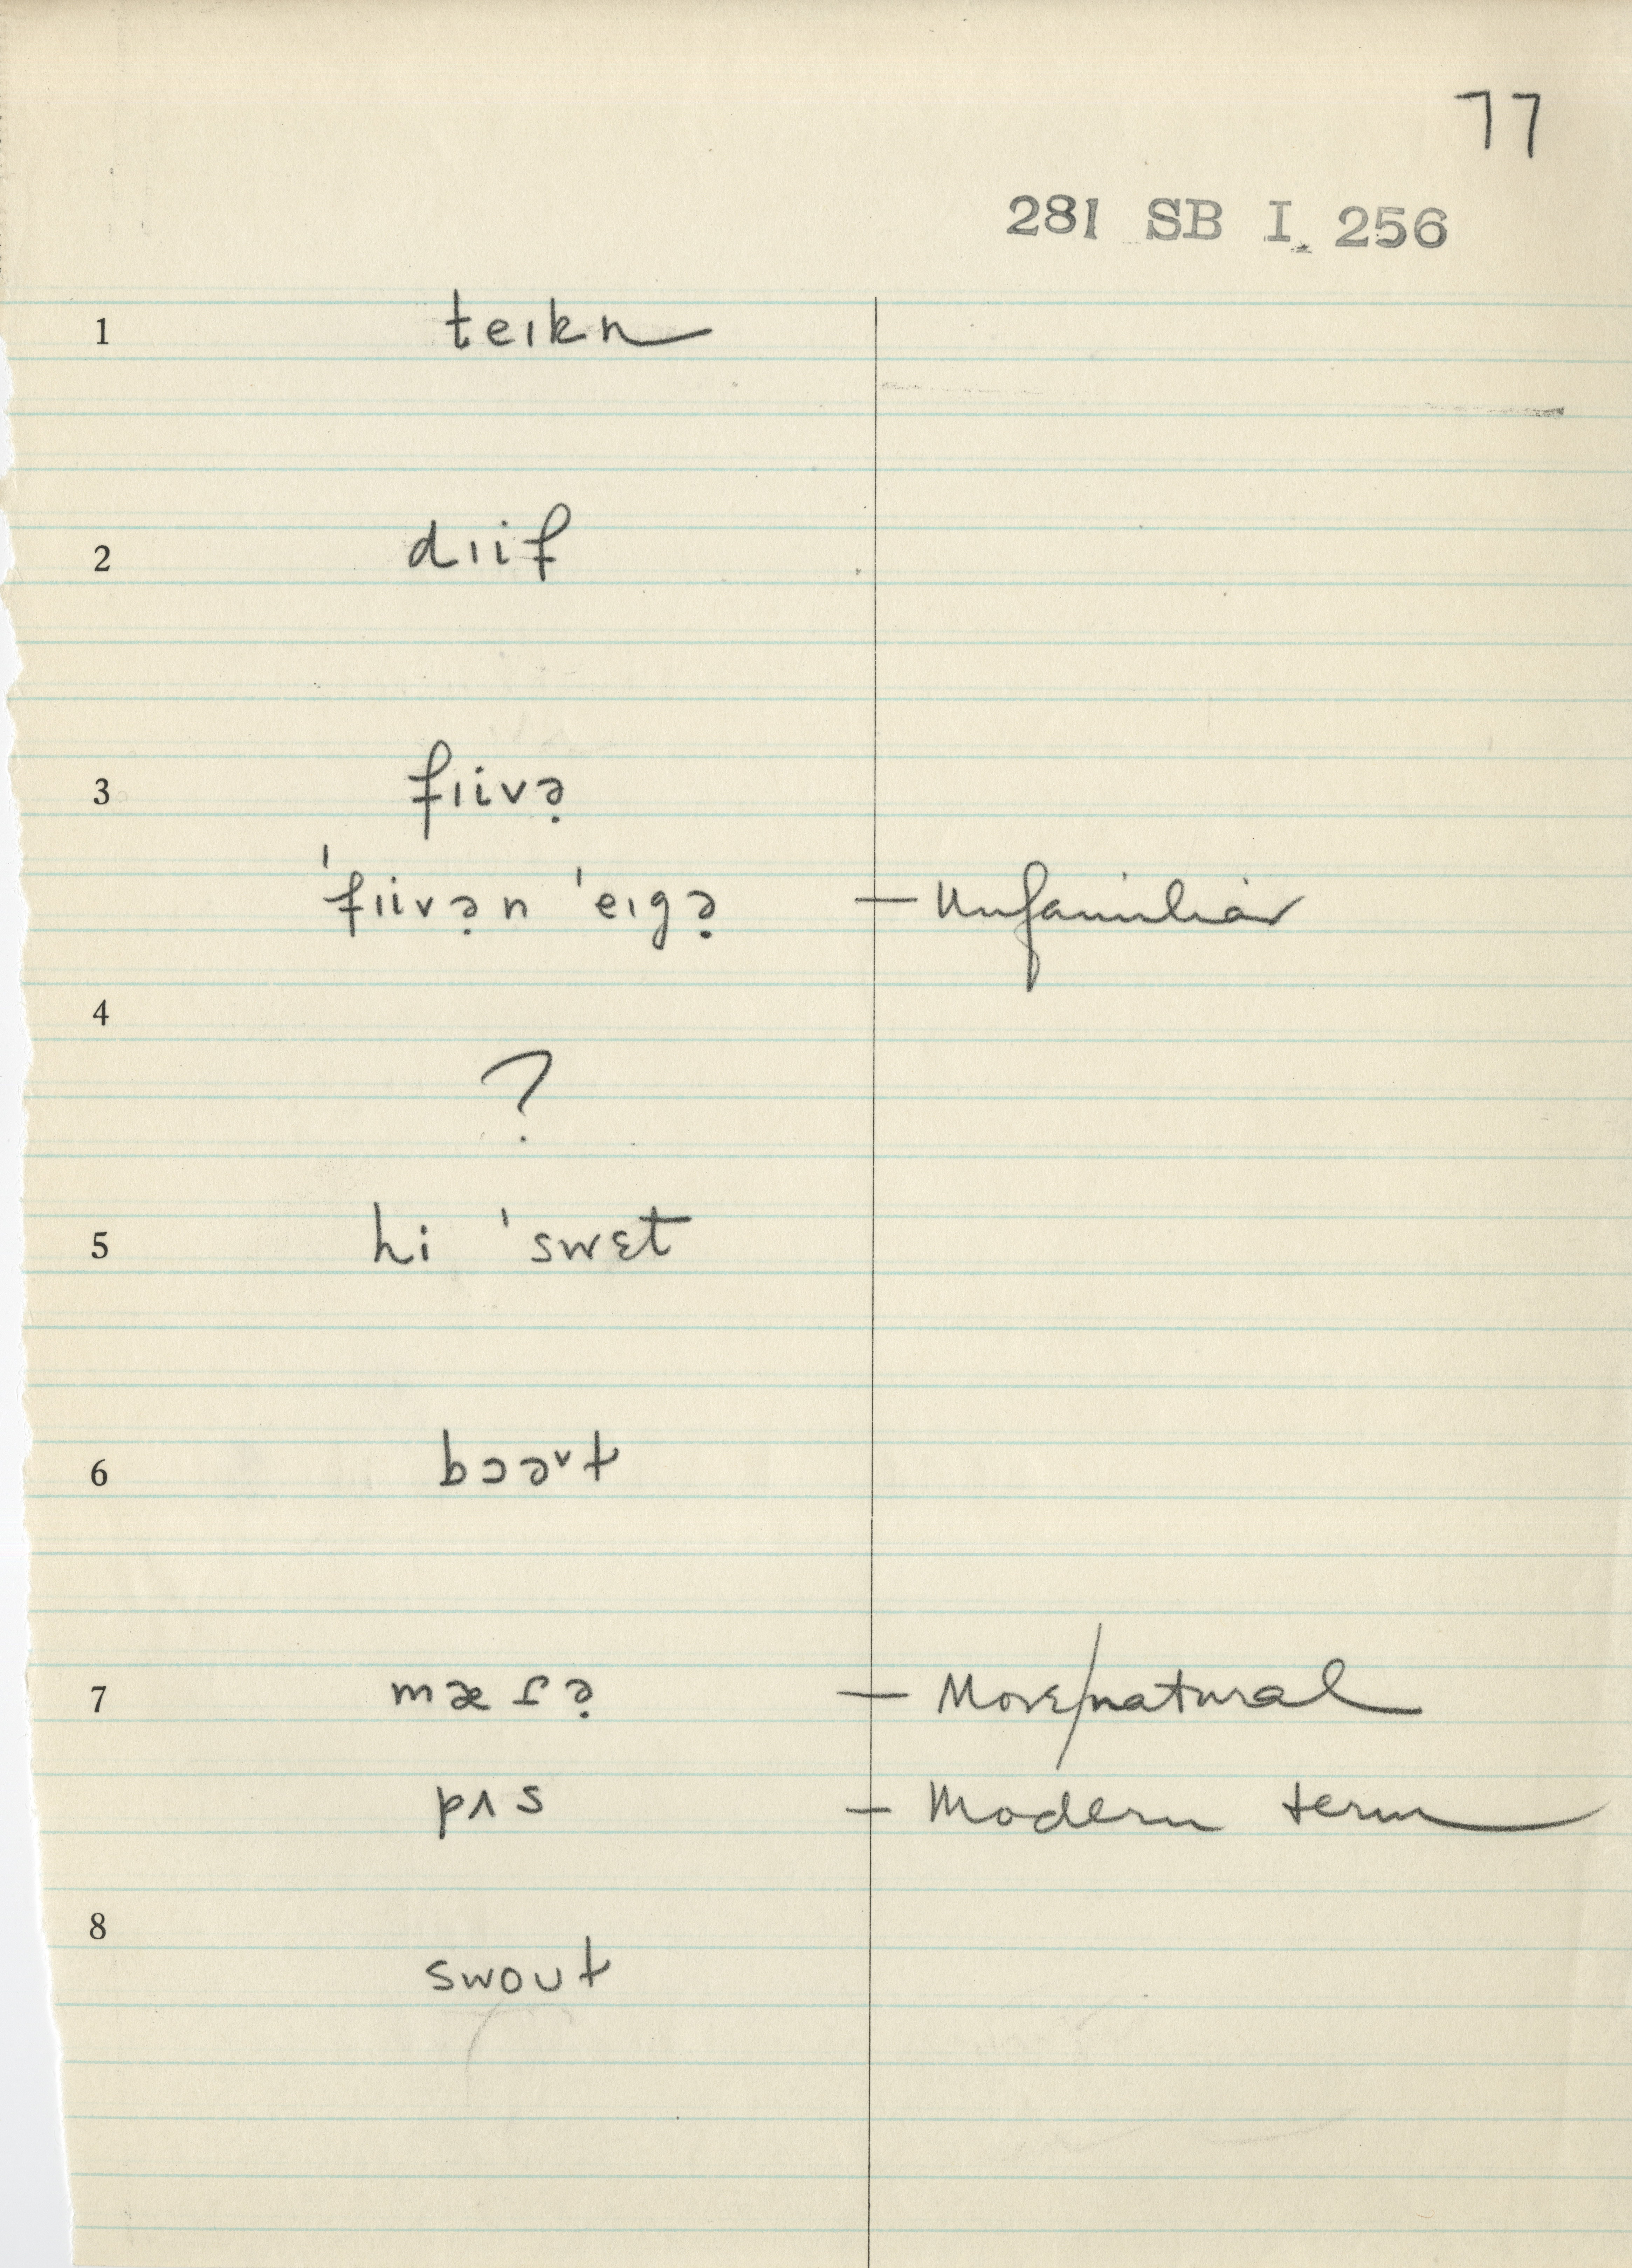 77
281 SB I. 256
1 teɪkn
2 dɪif
3 fɪivə̣
'fɪivə̣n 'eɪgə̣ — Unfamiliar
4
?
5 hi 'swɛt
6 bɔəᵛt
7 mæɾə̣ — More/natural
pʌs — Modern term
8 swout